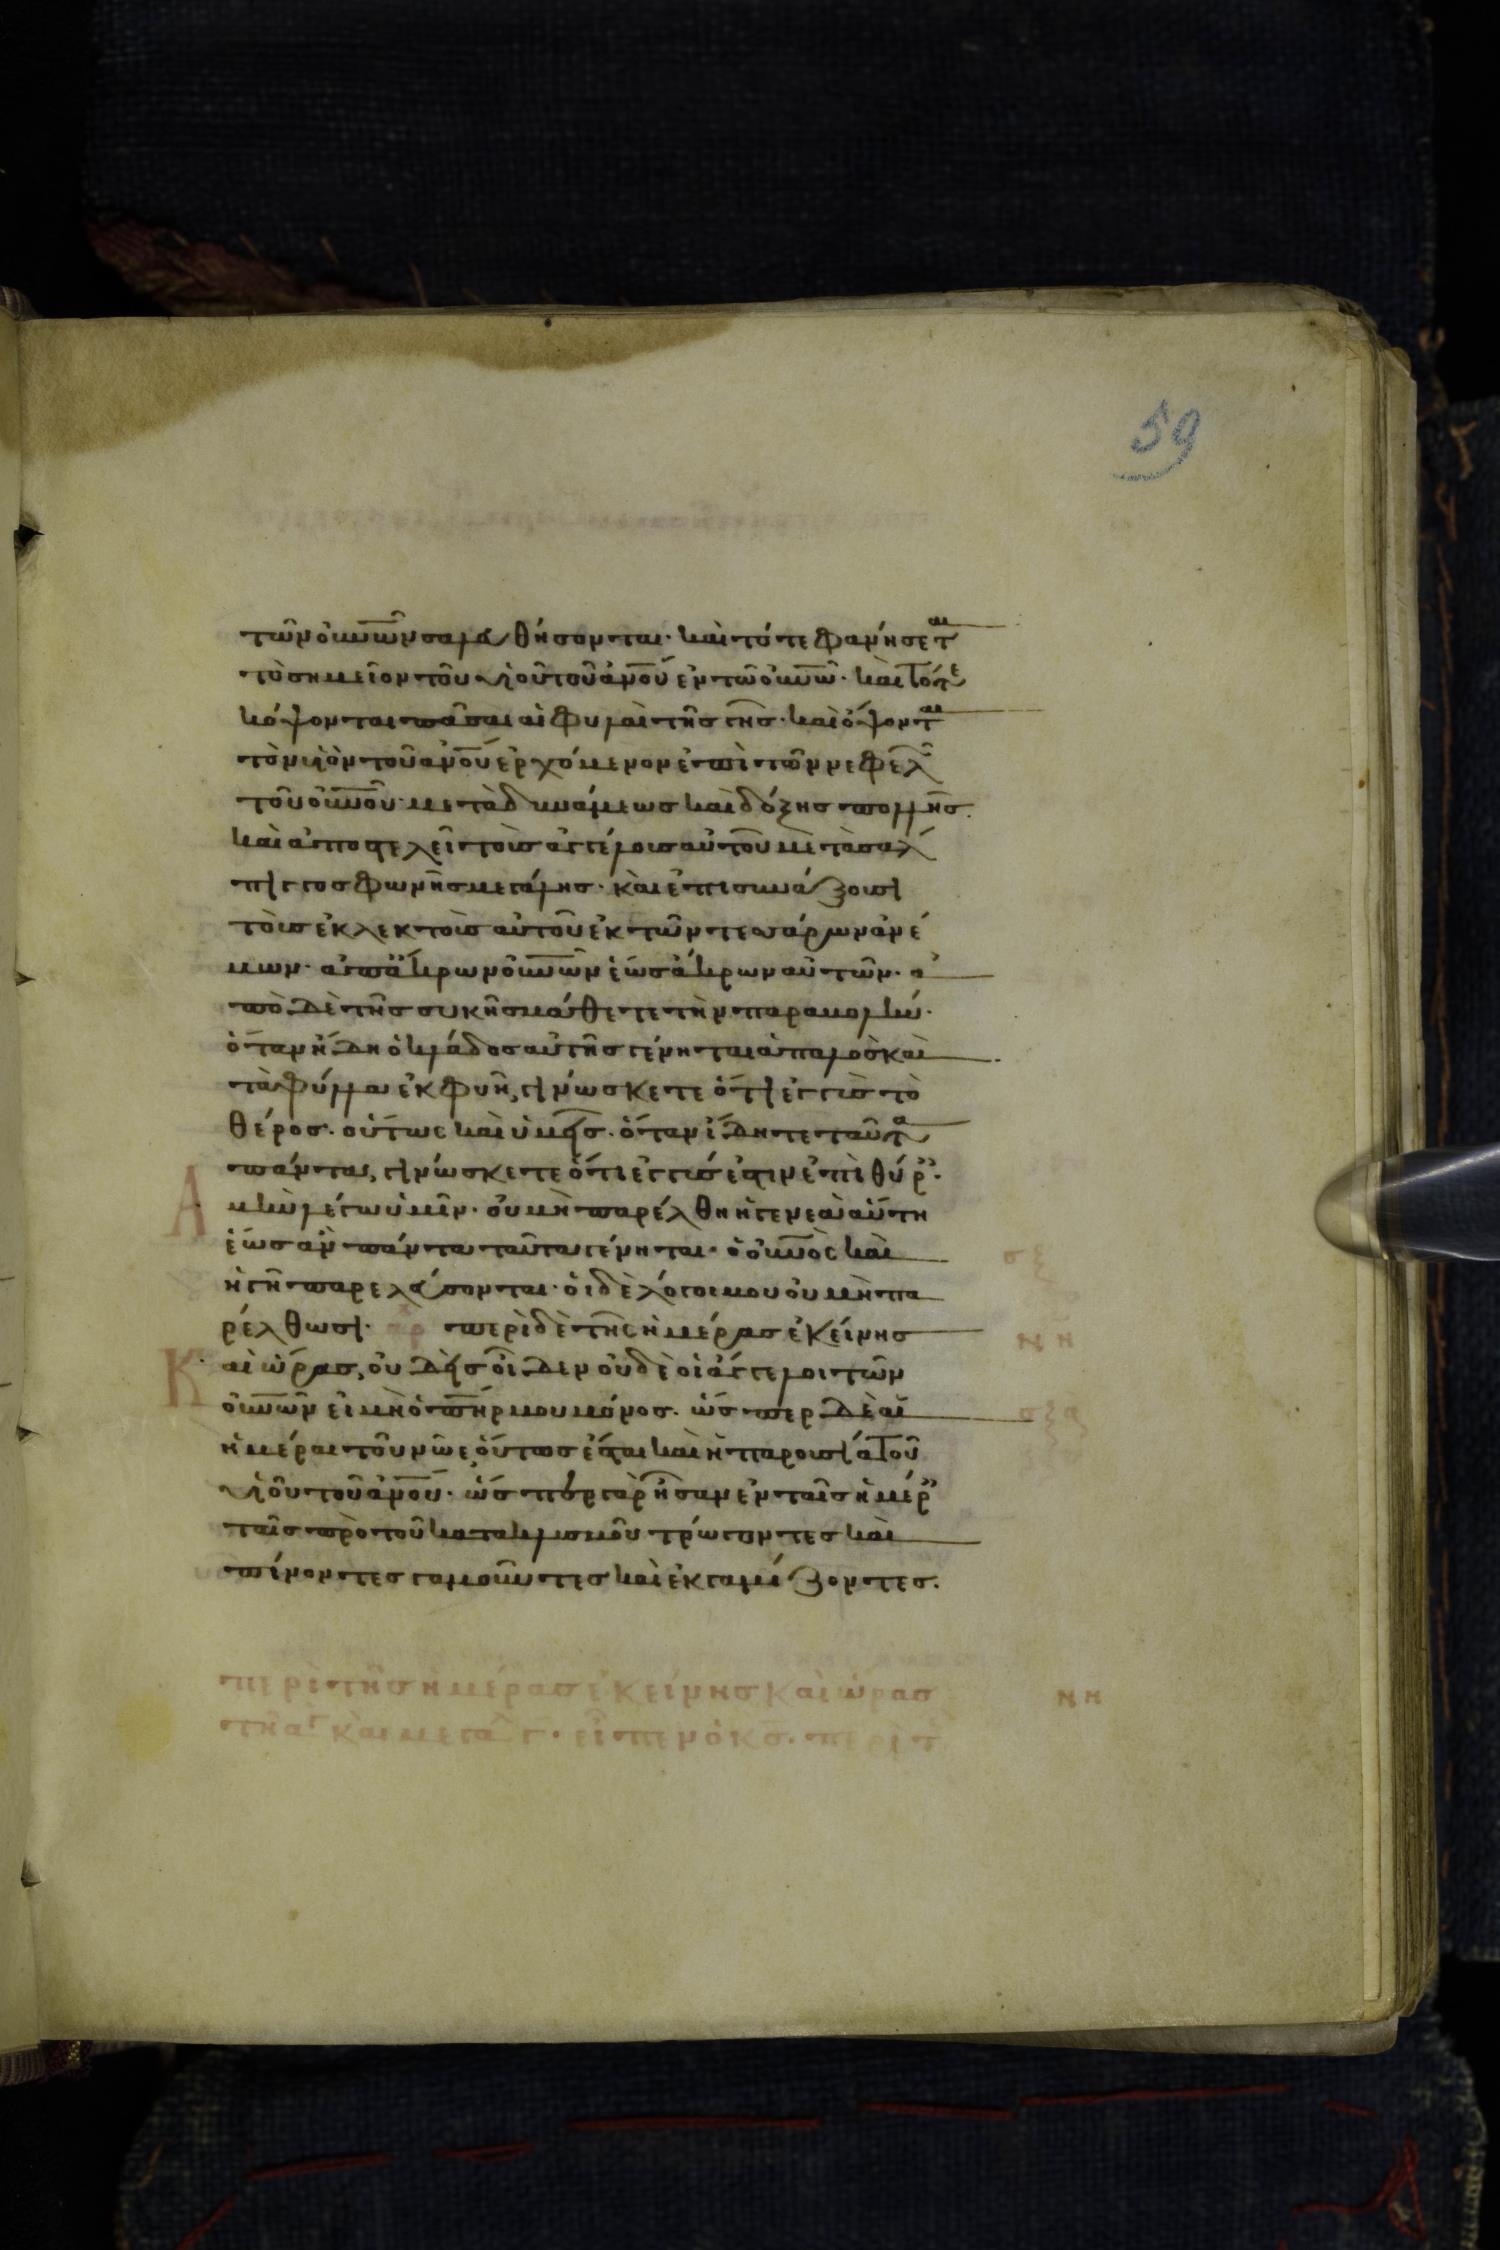 59
τῶν οὐνῶν σαλευθήσονται· καὶ τότε φανήσεται
τὸ σημεῖον τοῦ υἱοῦ τοῦ ἀνοῦ ἐν τῶ οὐνῶ· καὶ τότε
κόψονται πᾶσαι αἱ φυλαὶ τῆς γῆς· καὶ ὄψονται
τὸν υἱὸν τοῦ ἀνοῦ ἐρχόμενον ἐπὶ τῶν νεφελ
τοῦ οὐνοῦ· μετὰ δυνάμεως καὶ δόξης πολλῆς.
καὶ ἀποστελεῖ τοὺς ἀγγέλους αὐτοῦ μετὰ σάλ
πιγγος φωνῆς μεγάλης· καὶ ἐπισυνάξουσι
τοὺς ἐκλεκτοὺς αὐτοῦ ἐκ τῶν τεσσάρων ἀνέ
μων· ἀπ ἄκρων οὐνῶν ἕως ἄκρων αὐτῶν· ἀ
πὸ δὲ τῆς συκῆς μάθετε τὴν παραβολήν·
ὅταν ἤδη ὁ κλάδος αὐτῆς γένηται ἁπαλὸς καὶ
τὰ φύλλα ἐκφυῆ, γινώσκετε ὅτι ἐγγὺς τὸ
θέρος· οὕτως καὶ ὑμεῖς· ὅταν ἴδητε ταῦτα
πάντα, γινώσκετε ὅτι ἐγγύς ἐστιν ἐπὶ θύρ·
Α μὴν λέγω ὑμῖν· οὐ μὴ παρέλθη ἡ γενεὰ αὕτη
ἕως ἂν πάντα ταῦτα γένηται· ὁ οὐνὸς καὶ
ἡ γῆ παρελεύσονται· οἱ δὲ λόγοι μου οὐ μὴ πα
ρέλθωσι· ἀρ περὶ δὲ τῆς ἡμέρας ἐκείνης
Κ αὶ ὥρας, οὐδεὶς οἶδεν οὐδὲ οἱ ἄγγελοι τῶν
οὐνῶν εἰ μὴ ὁ πηρ μου μόνος· ὥσπερ δὲ αἱ
ἡμέραι τοῦ νῶε, οὕτως ἔσται καὶ ἡ παρουσία τοῦ
υἱοῦ τοῦ ἀνοῦ· ὥσπερ γὰρ ἦσαν ἐν ταῖς ἡμέρ
ταῖς πρὸ τοῦ κατακλυσμοῦ τρώγοντες καὶ
πίνοντες γαμοῦντες καὶ ἐκγαμίζοντες·
σξ
νη
σξα
περὶ τῆς ἡμέρας ἐκείνης καὶ ὥρας νη